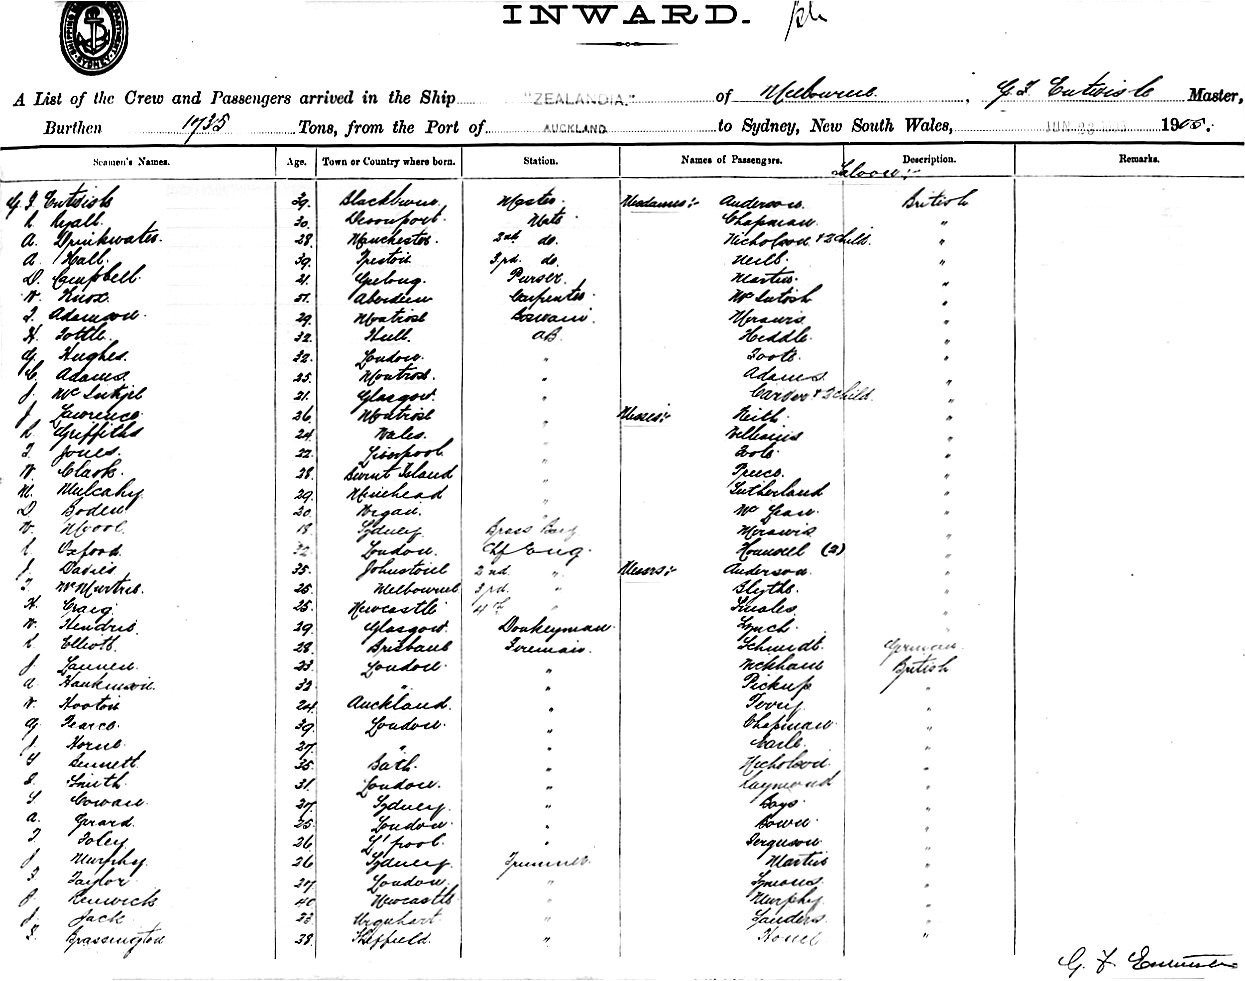 INWARD.
SYDNEY
A List of the Crew and Passengers arrived in the Ship "ZEALANDIA." of Melbourne, G F Entwisle Master,
Burthen 1735 Tons, from the Port of AUCKLAND to Sydney, New South Wales, JUN 1905.
Seamen's Names. Age. Town or Country where born. Station. Names of Passengers. Description. Remarks.
Saloon:-
G F Entwisle 39. Blackburn Master. Mesdames:- Anderson British
Ryall. 30. Devonport. Mate Chapman "
A. Drinkwater 28. Manchester. 2nd do. Nicholson & 2 Child. "
A Hall. 39. Preston 3rd do. Neill "
D. Campbell. 21. Geelong. Purser. Martin "
W. Knox. 51. Aberdeen Carpenter. McIntosh "
Adamson. 29. Montrose "
H Tottle. 32. Hull. AB. Heddle "
G. Hughes. 32. London. " Foote "
C Adams. 25. Montrose. " Adams "
J. 21. Glasgow. " Carder & 2 Child. "
J Lawrence. 26 Montrose " Misses:- Keith. "
Griffiths 24. Wales. " Williams "
Jones. 22. Liverpool. " Foote "
W. Clark. 28. Burnt Island " Preece "
M. Mulcahy. 29. Minehead " Sutherland "
D Boden 20. Wigan. " McLean "
W. 18. Sydney. Brass Boy "
Oxford. 32. London. Chf Eng. (2) "
J Davies 35. Johnstone 2nd " Messrs:- Anderson. "
McMurtrie. 25. Melbourne 3rd. " Blythe "
H. Craig. 25. Newcastle 4th. " "
W Hendrie 29. Glasgow. Donkeyman Lynch. "
Elliott. 28. Brisbane Fireman. Schmidt. German.
J. 23. London. " British
A Hankinson. 32. " " Pickup "
W Hooton 24. Auckland. " "
G. Pearce. 39. London. " Chapman "
J. Horne. 27. " " Earle. "
Bennett. 35. Bath. " Nicholson "
Smith. 31. London. " Raymond "
Cowan. 27. Sydney. " Boys "
A. Girard. 25. London. " Bown. "
Foley 26. L'pool. " Ferguson "
J Murphy. 26 Sydney. Trimmer. Martin "
Taylor. 27. London. " Symons. "
Renwick 40 Newcastle " Murphy. "
J. Jack. 23. Urquhart. " Sanders. "
Brassington 38. Sheffield. " "
G. F. Entwisle